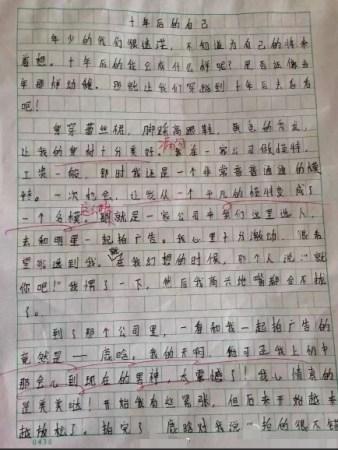 十年后的自己
年少的我们很迷茫，不知道为自己的将来
着想。十年后的我会成什么样呢？是否还像当
年那样幼稚。那就让我们穿越到十年后去看看
吧！
身穿蕾丝裙，脚踩高跟鞋，
让我的身材十分美好。我在一家公司做模特，
工资一般，那时我还是一个非常普普通通的模
特。一次机会，让我从一个平凡的模特变成了
一个名模。那就是一家公司中我们这里选人，
去和明星一起拍广告。我心里十分激动，
望那选到我。在我幻想的时候，那个人说："就
你吧！"我愣了一下，然后我高兴地嘴都合不拢
了。
到了那个公司里，一看和我一起拍广告的
竟然是——鹿晗，我的天啊，他可是我上初中
那会儿到现在的男神，太震撼了！我心情真的
是美美哒！开始我有些紧张，但后来开始越来
越放松了。拍完了，鹿晗对我说："拍的很不错